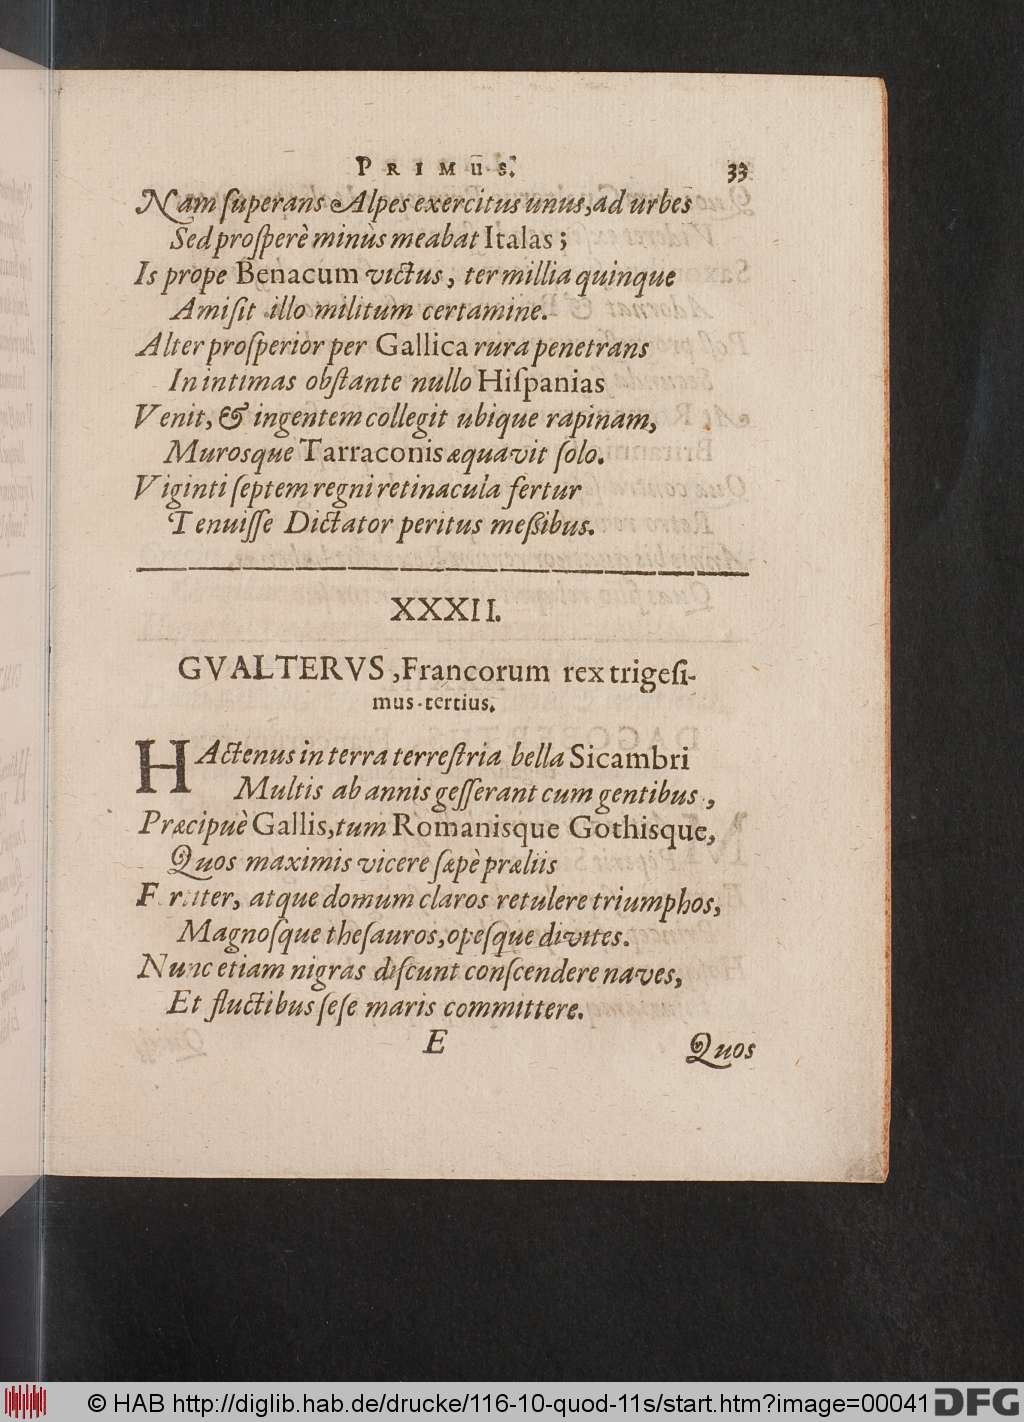 PRIMUS. 33
Nam ſuperans Alpes exercitus unus, ad urbes
Sed proſperè minùs meabat Italas;
Is prope Benacum victus, ter millia quinque
Amiſit illo militum certamine.
Alter proſperior per Gallica rura penetrans
In intimas obſtante nullo Hiſpanias
Venit, & ingentem collegit ubique rapinam,
Murosque Tarraconis æquavit ſolo.
Viginti ſeptem regni retinacula fertur
Tenuiſſe Dictator peritus meßibus.
XXXII.
GVALTERVS, Francorum rex trigeſi-
mus-tertius.
HActenus in terra terreſtria bella Sicambri
Multis ab annis geſſerant cum gentibus,
Præcipuè Gallis, tum Romanisque Gothisque,
Quos maximis vicere ſæpè præliis
Fortiter, atque domum claros retulere triumphos,
Magnoſque theſauros, opeſque divites.
Nunc etiam nigras diſcunt conſcendere naves,
Et fluctibus ſeſe maris committere.
E Quos
© HAB http://diglib.hab.de/drucke/116-10-quod-11s/start.htm?image=00041 DFG